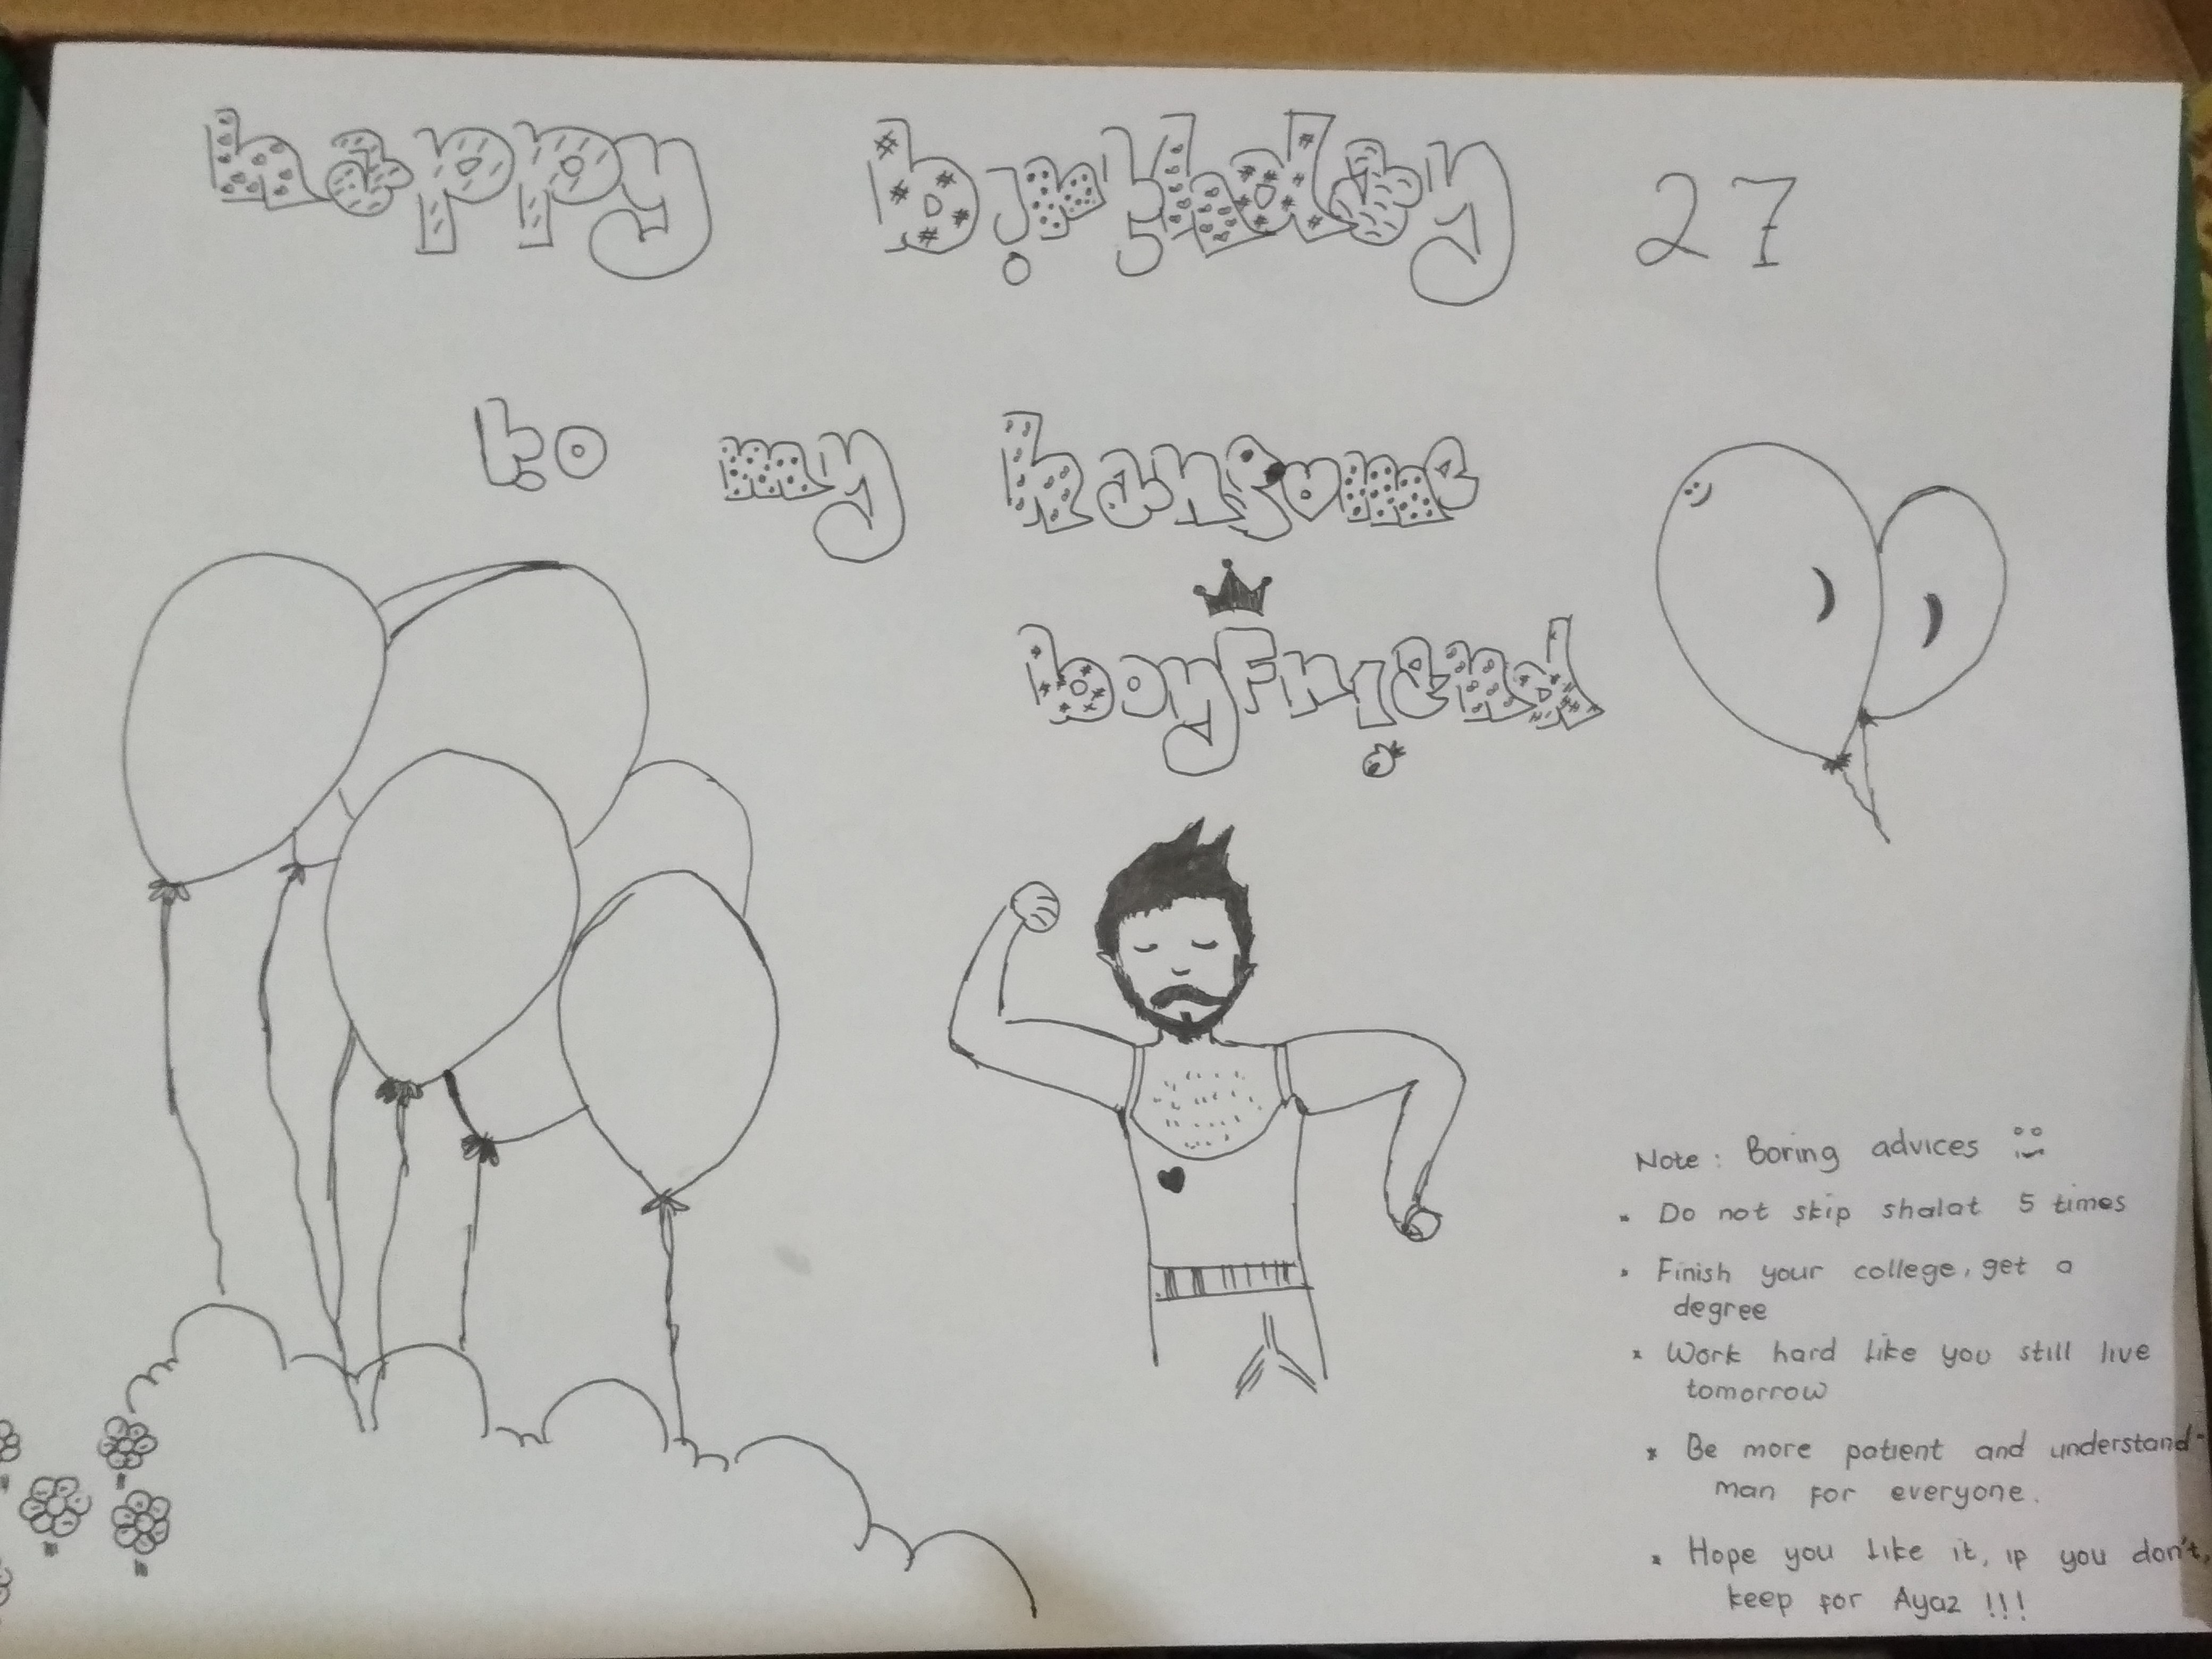 happy birthday 27
to my hansome
boyfriend
Note : Boring advices
* Do not skip shalat 5 times
* Finish your college, get a
degree
* Work hard like you still live
tomorrow
* Be more patient and understand-
man for everyone.
* Hope you like it, if you don't,
keep for Ayaz !!!